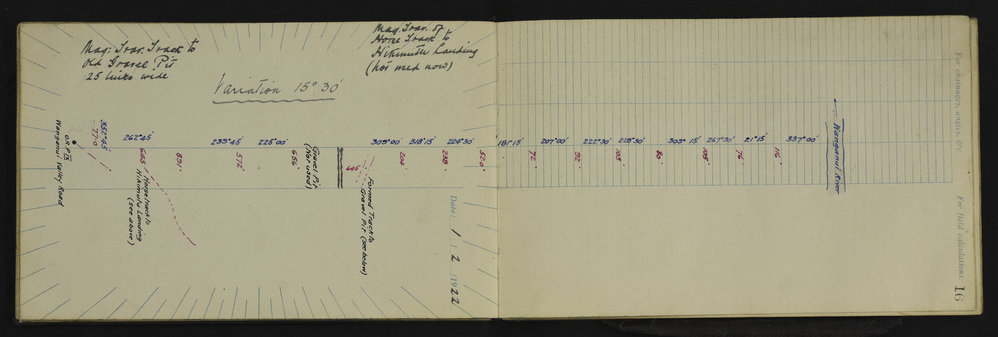 Mag: Trav. Track to
Old Gravel Pit
25 links wide
Variation 15° 30'
Mag. Trav. of
Horse Track to
Hikimutu Landing
(Not used now)
Wanganui Valley Road
O.R.P
352°45'
77.0
262°45'
645
Horse track to
Hikimutu Landing
(see above)
831
239°45'
572
225°00'
656
Gravel Pit
(Not used)
645
Formed Track to
Gravel Pit (see below)
309°00'
204
318°15'
238
204°30'
520
Date: 1 / 2 /1922
181°15'
72
207°00'
92
222°30'
105
228°30'
80
303°15'
105
257°30'
76
21°15'
116
337°00'
Wanganui River
For chainages, angles, &c.
For field calculations.
16